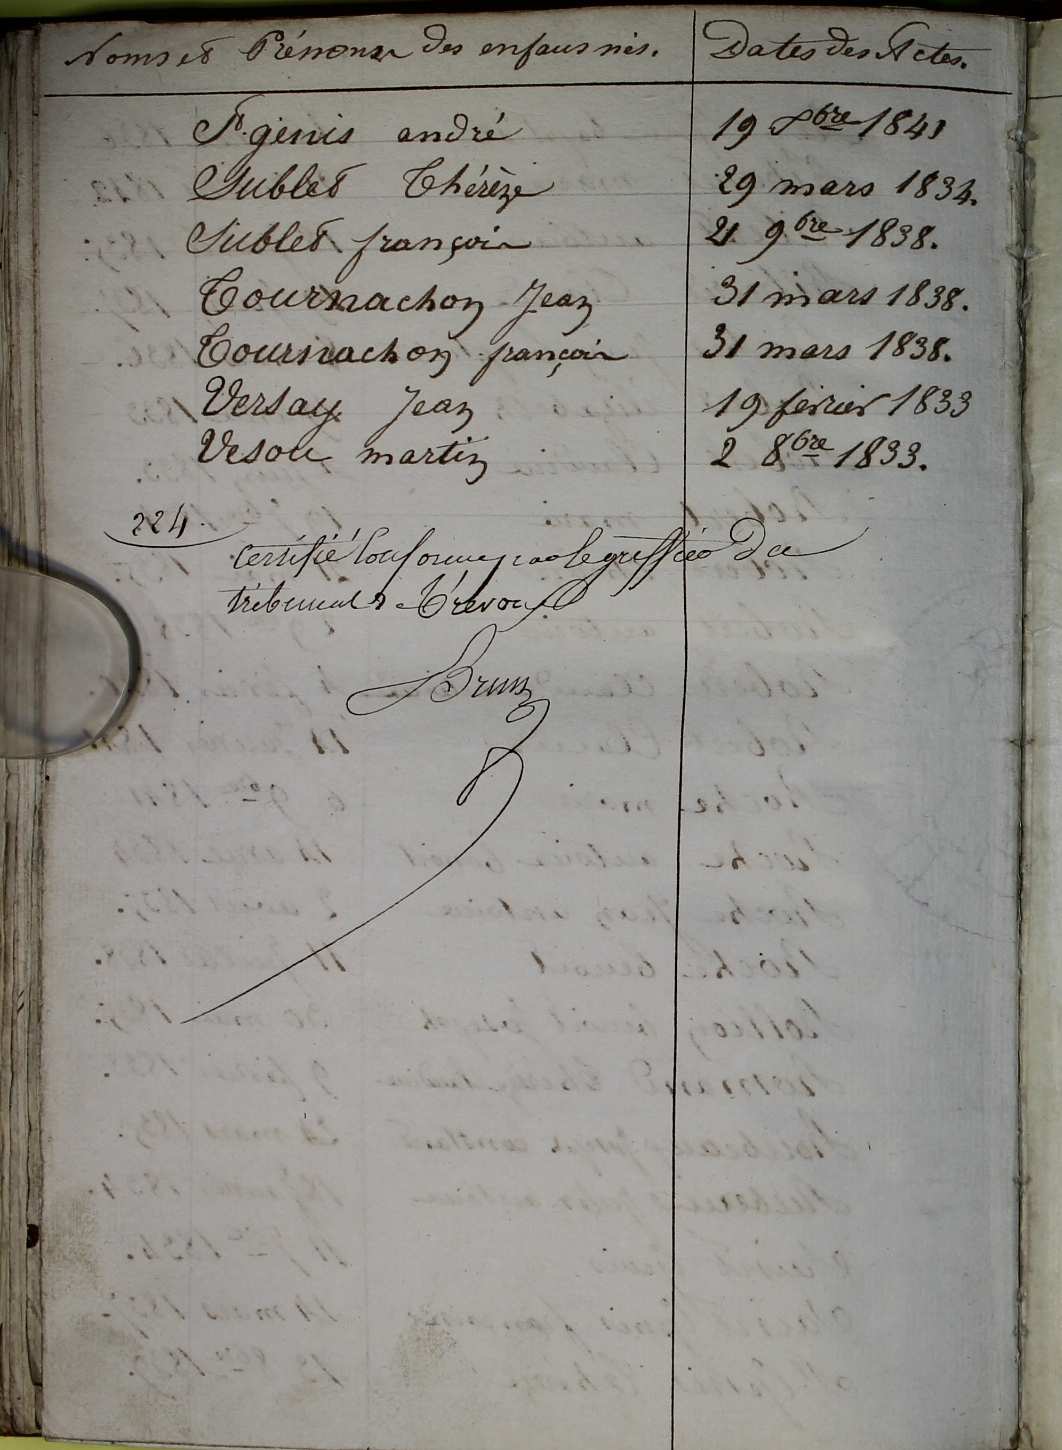 Noms et Prénoms des enfans nés. Dates des Actes.
St. genis andré 19 8bre 1841
Sublet Thérèze 29 mars 1834.
Sublet françois 21 9bre 1838.
Tournachon Jean 31 mars 1838.
Tournachon françois 31 mars 1838.
Versay Jean 19 fevrier 1833
Vesou martin 2 8bre 1833.
224.
Certifié Conforme par le greffier du
tribunal de Trévoux
Brun